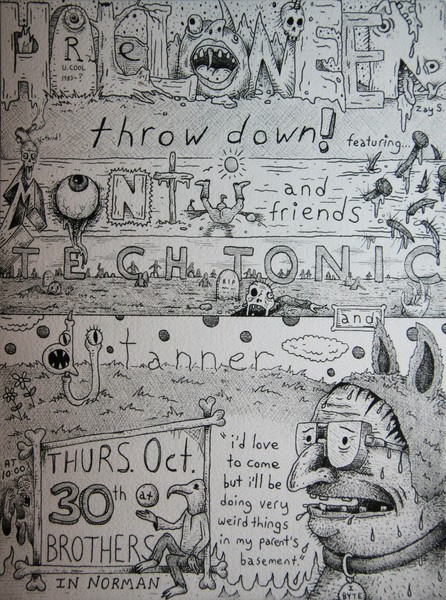 HALLOWEEN
PRe
U. COOL
1983-?
throw down!
featuring...
MONTU and
friends
TECH TONIC
RIP
and
dj tanner
AT
10:00
THURS. Oct.
30th at
BROTHERS
IN NORMAN
"i'd love
to come
but i'll be
doing very
weird things
in my parent's
basement."
BYTE